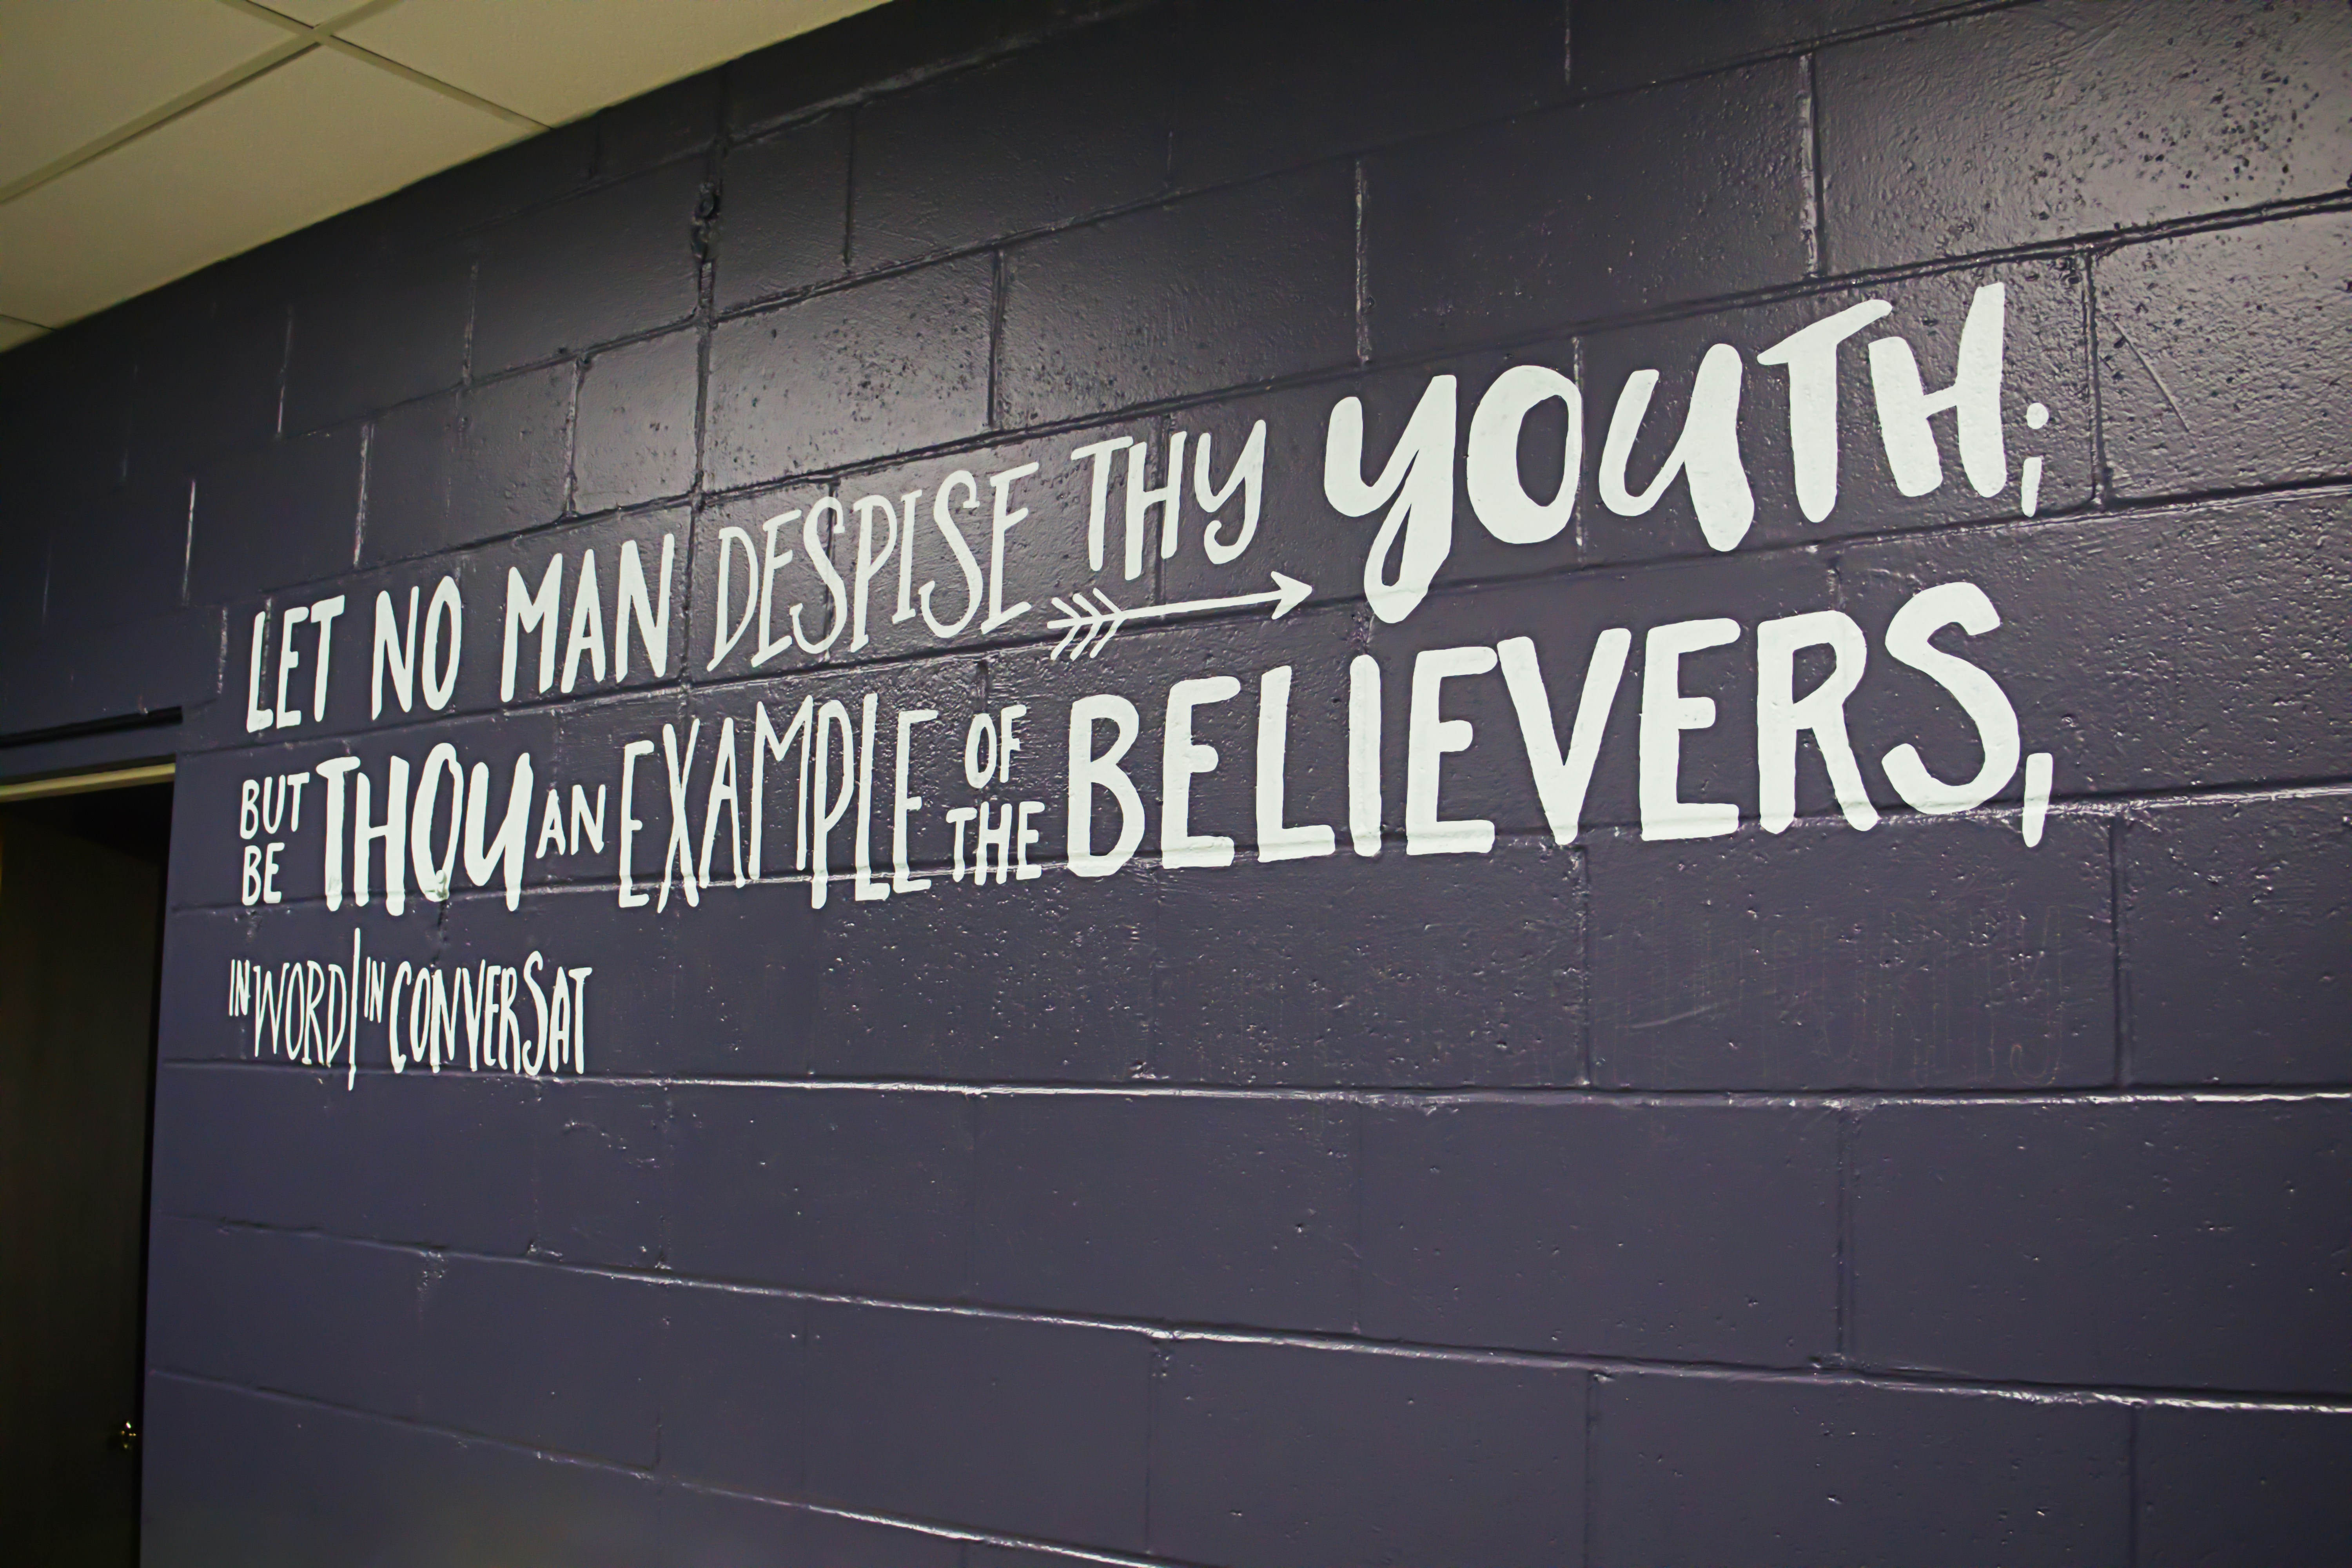 LET NO MAN DESPISE THY YOUTH;
BUT BE THOU AN EXAMPLE OF THE BELIEVERS,
IN WORD | IN CONVERSAT